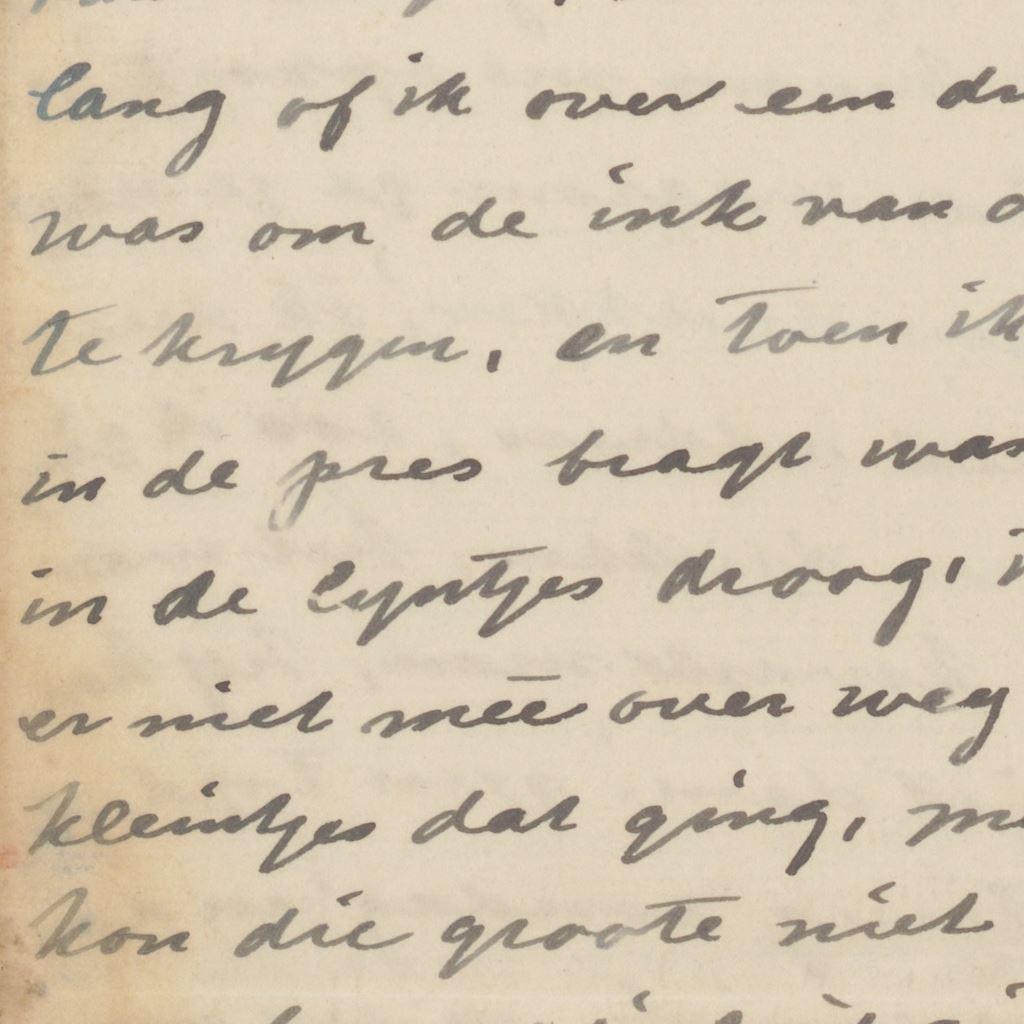 lang of ik over een
was om de ink van
te krygen, en toen ik
in de pres bragt was
in de lyntjes droog,
er niet mēē over weg
kleintjes dat ging,
kon die groote niet